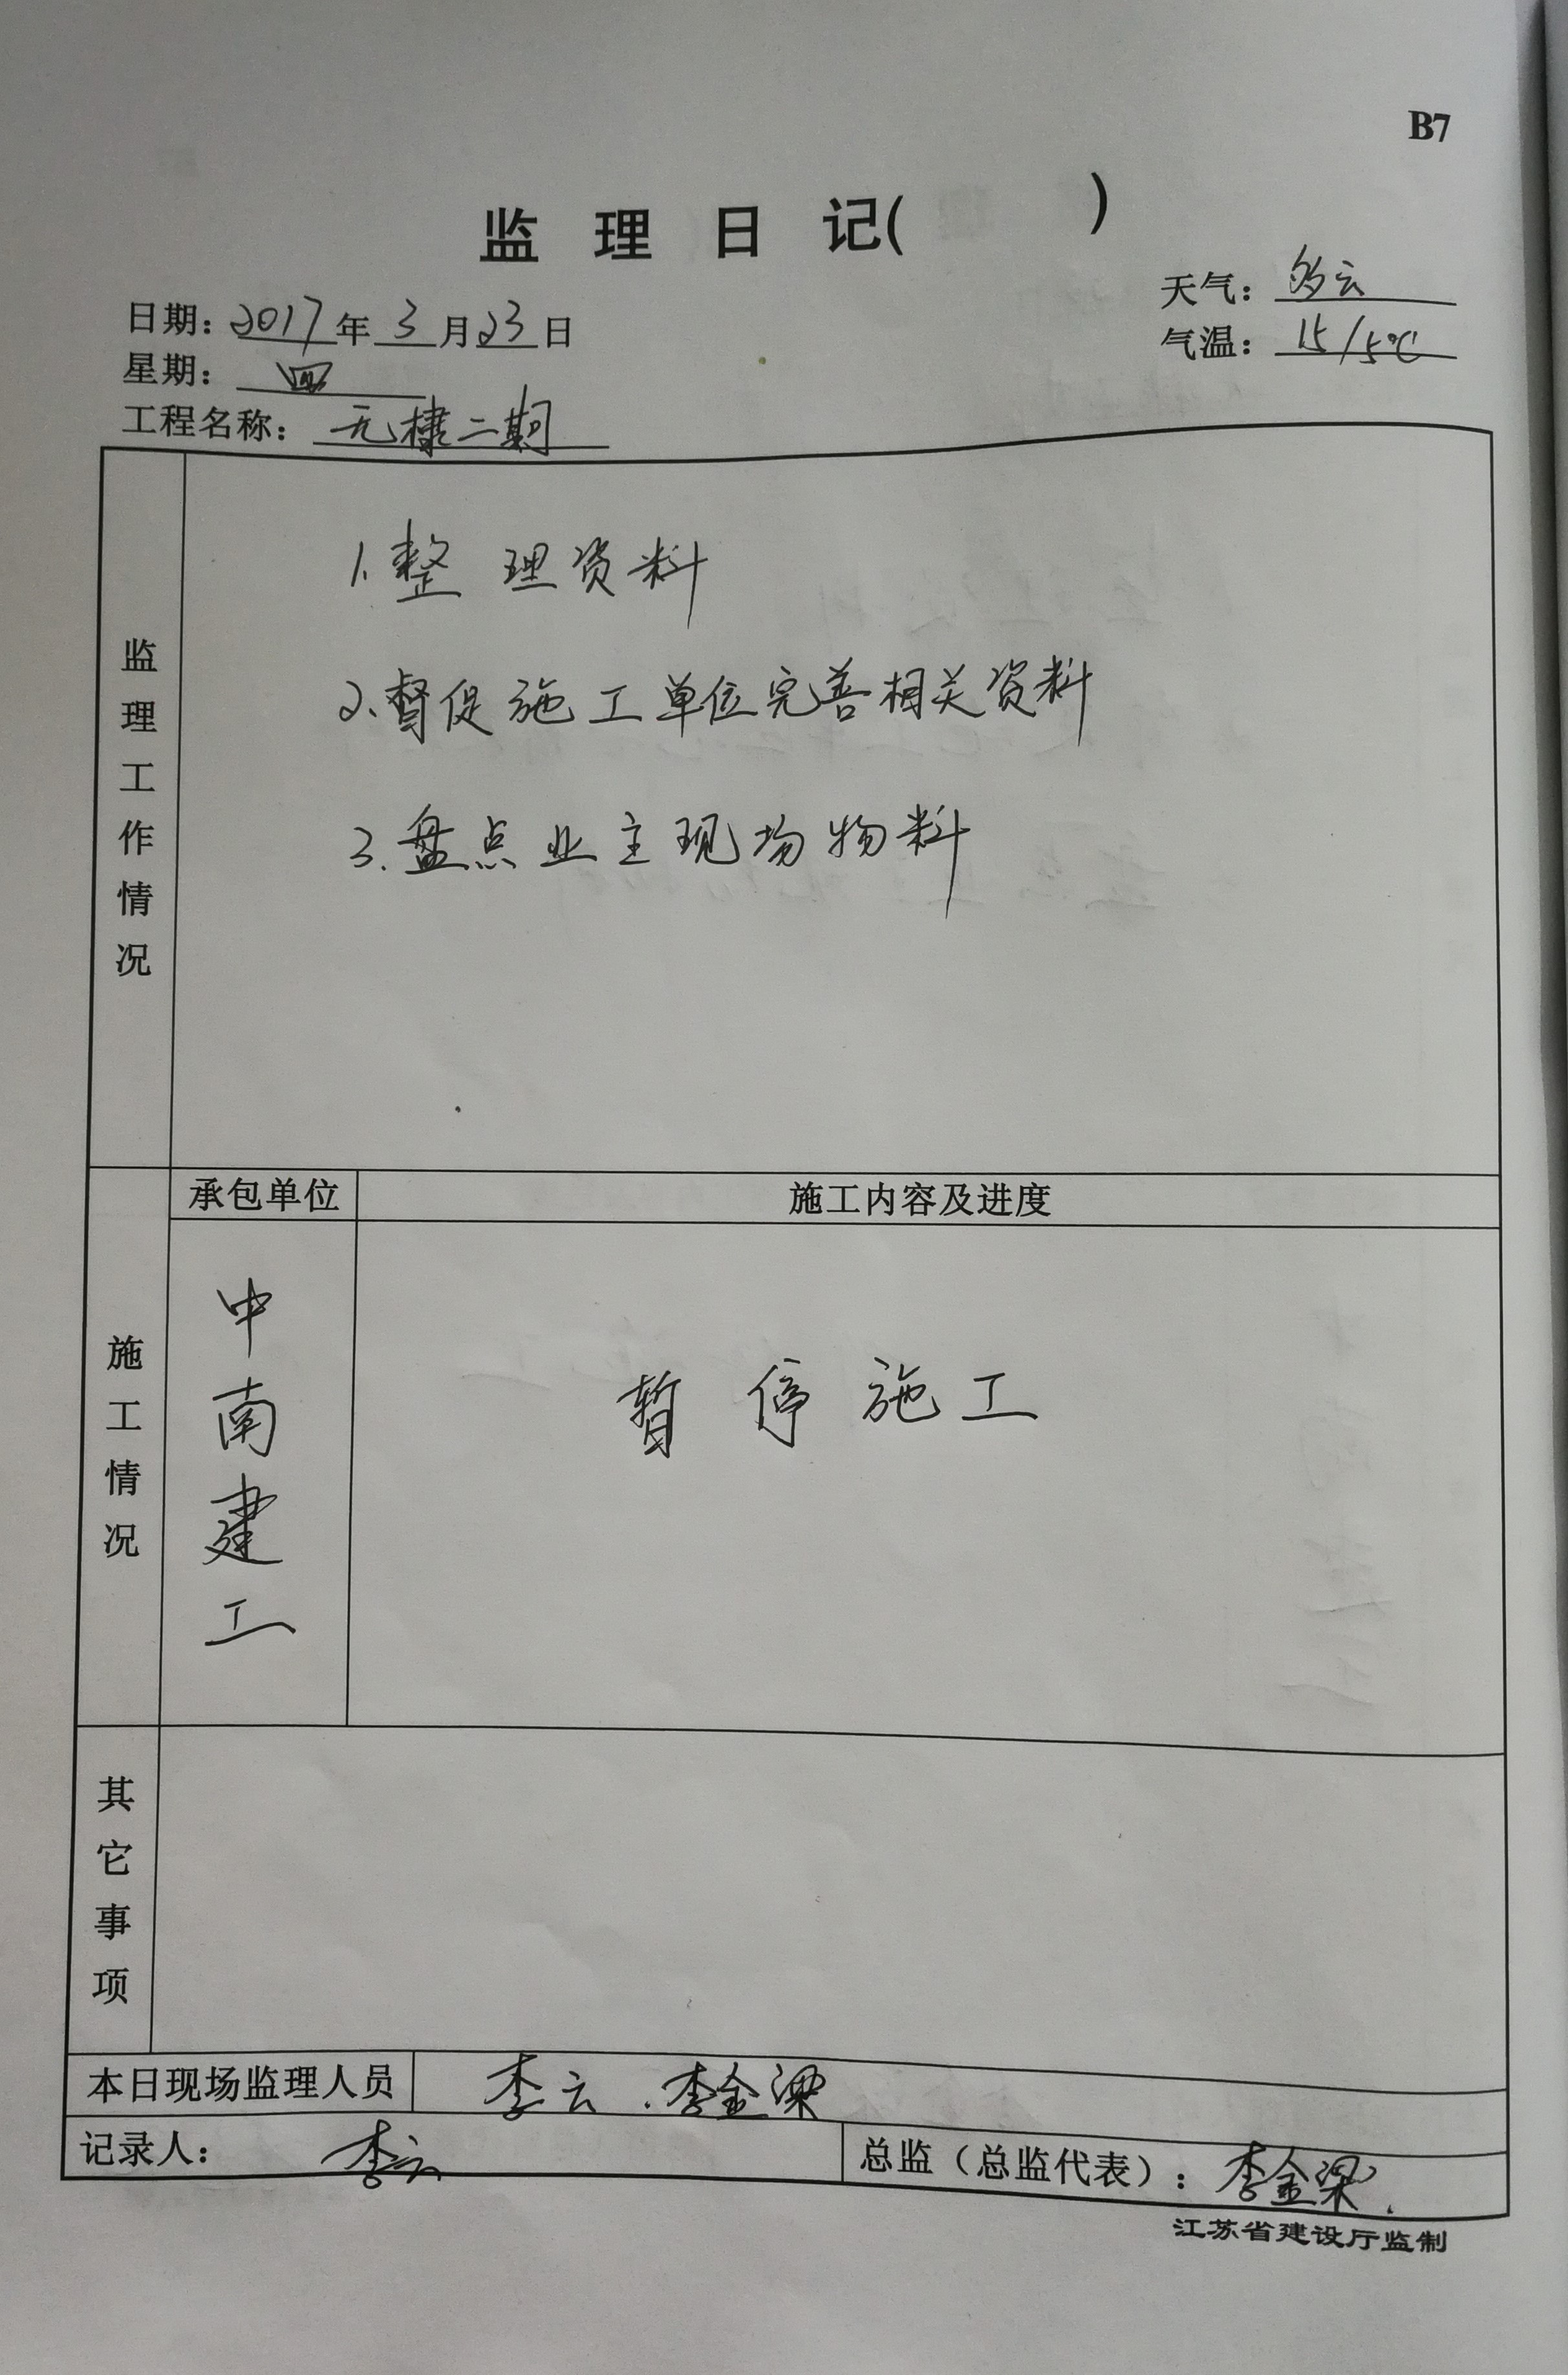 B7
监理日记( )
日期：2017年3月23日
天气：多云
星期：四
气温：15/5℃
工程名称：无棣二期
监理工作情况
1.整理资料
2.督促施工单位完善相关资料
3.盘点业主现场物料
施工情况
承包单位
施工内容及进度
中南建工
暂停施工
其它事项
本日现场监理人员 李云.李金梁
记录人：李云
总监（总监代表）：李金梁.
江苏省建设厅监制